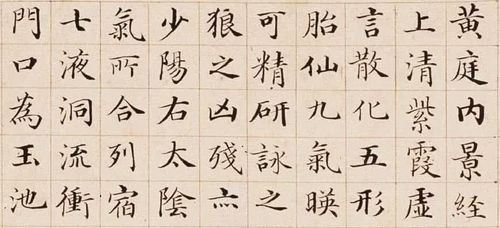 黃庭内景経
上清紫霞虛
言散化五形
胎仙九氣暎
可精研詠之
狼之凶殘亦
少陽右太陰
氣所合列宿
七液洞流衝
門口為玉池